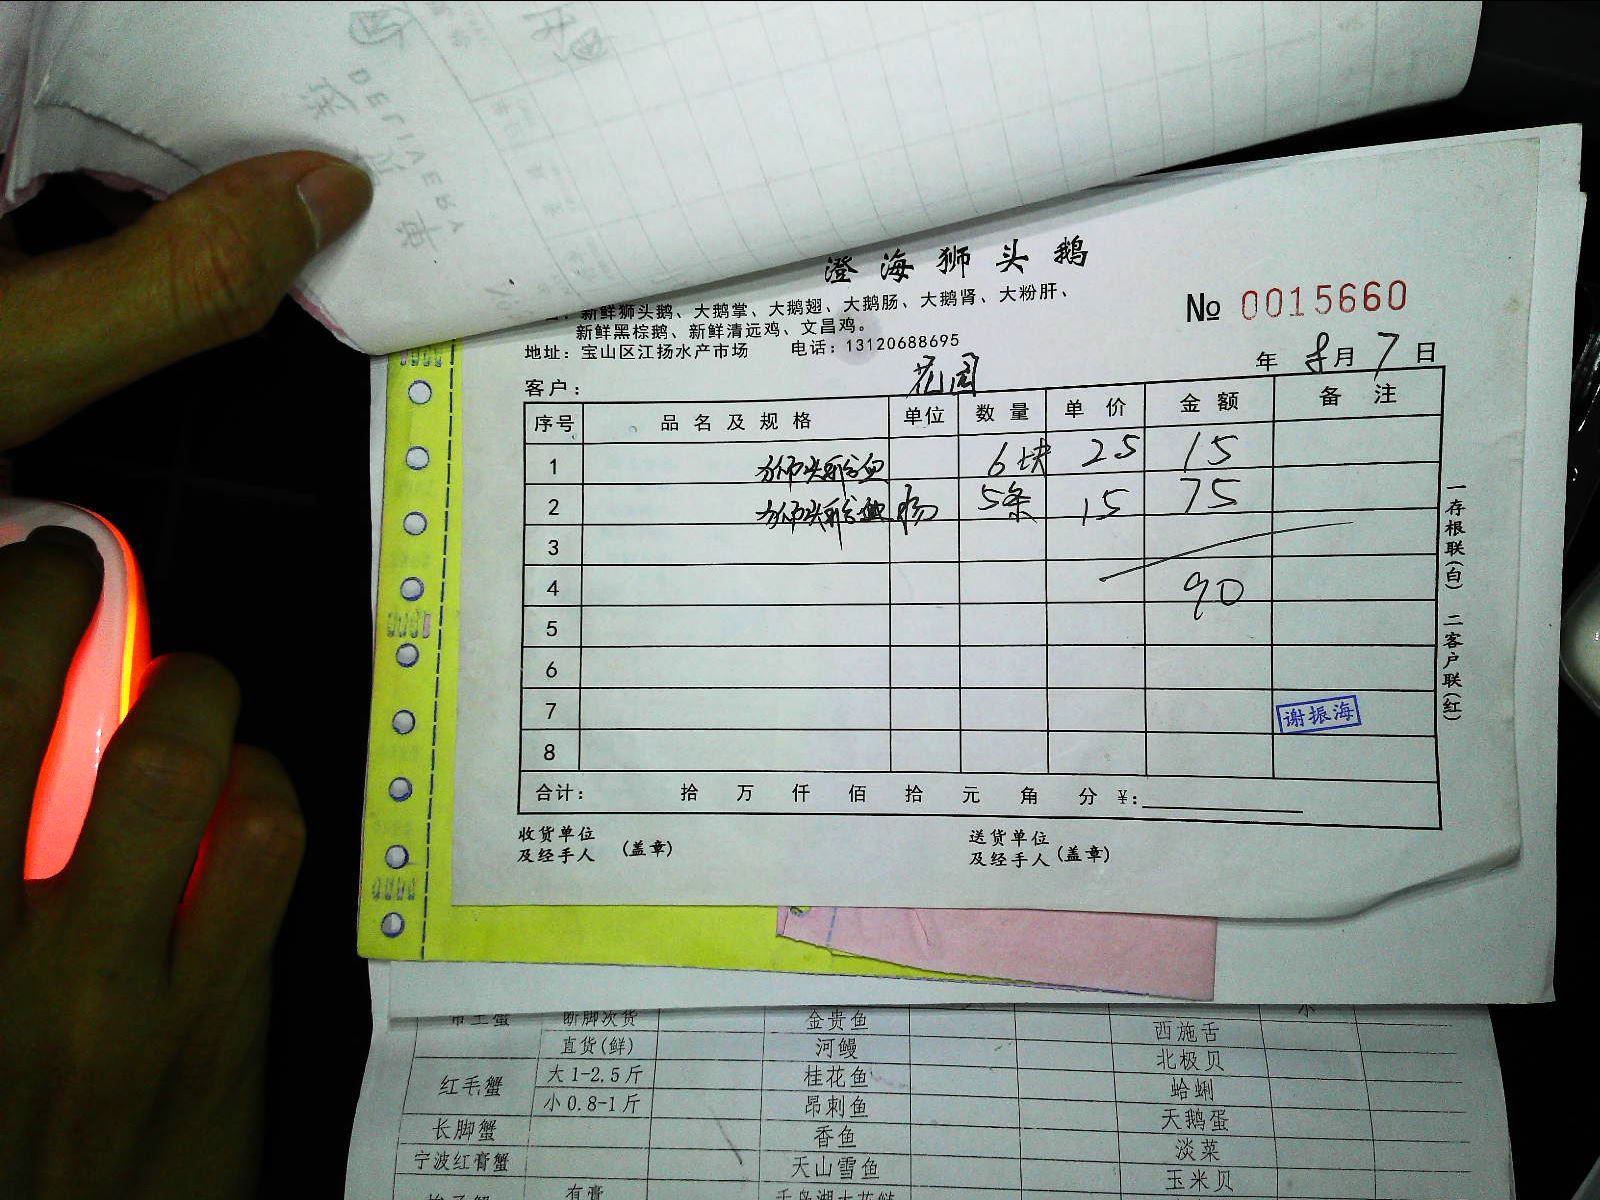 澄海狮头鹅
、新鲜狮头鹅、大鹅掌、大鹅翅、大鹅肠、大鹅肾、大粉肝、
新鲜黑棕鹅、新鲜清远鸡、文昌鸡。
地址：宝山区江扬水产市场 电话：13120688695
№ 0015660
年 8月 7日
客户： 花园
序号 品名及规格 单位 数量 单价 金额 备注
1 狮头鹅 6块 25 15
2 狮头鹅 肠 5条 15 75
3
4 90
5
6
7 谢振海
8
合计： 拾 万 仟 佰 拾 元 角 分 ¥：
收货单位
及经手人 (盖章)
送货单位
及经手人 (盖章)
一存根联(白) 二客户联(红)
帝王蟹 断脚次货 金贵鱼 小
直货(鲜) 河鳗 西施舌
红毛蟹 大1-2.5斤 桂花鱼 北极贝
小0.8-1斤 昂刺鱼 蛤蜊
长脚蟹 香鱼 天鹅蛋
宁波红膏蟹 天山雪鱼 淡菜
有膏 玉米贝